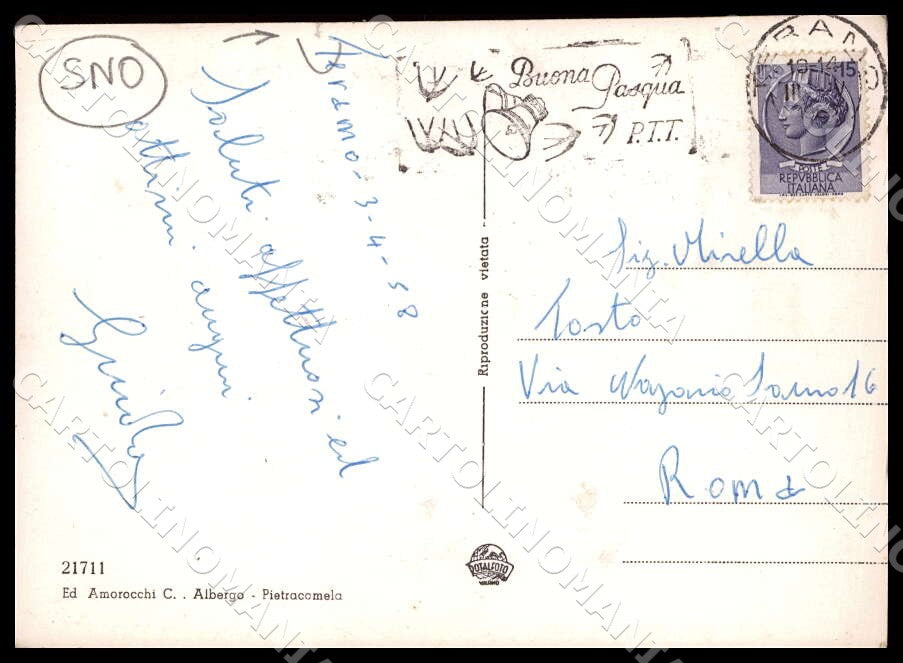 SNO
Teramo - 3-4-58
Saluti affettuosi ed
ottimi auguri
Buona Pasqua
P.T.T.
TERAMO
15
POSTE
REPVBBLICA
ITALIANA
Riproduzione vietata
Sig. Mirella
Tosto
Via Nazario Sauro 16
Roma
21711
Ed Amorocchi C. . Albergo - Pietracamela
ROTALFOTO
MILANO
CARTOLINOMANIA